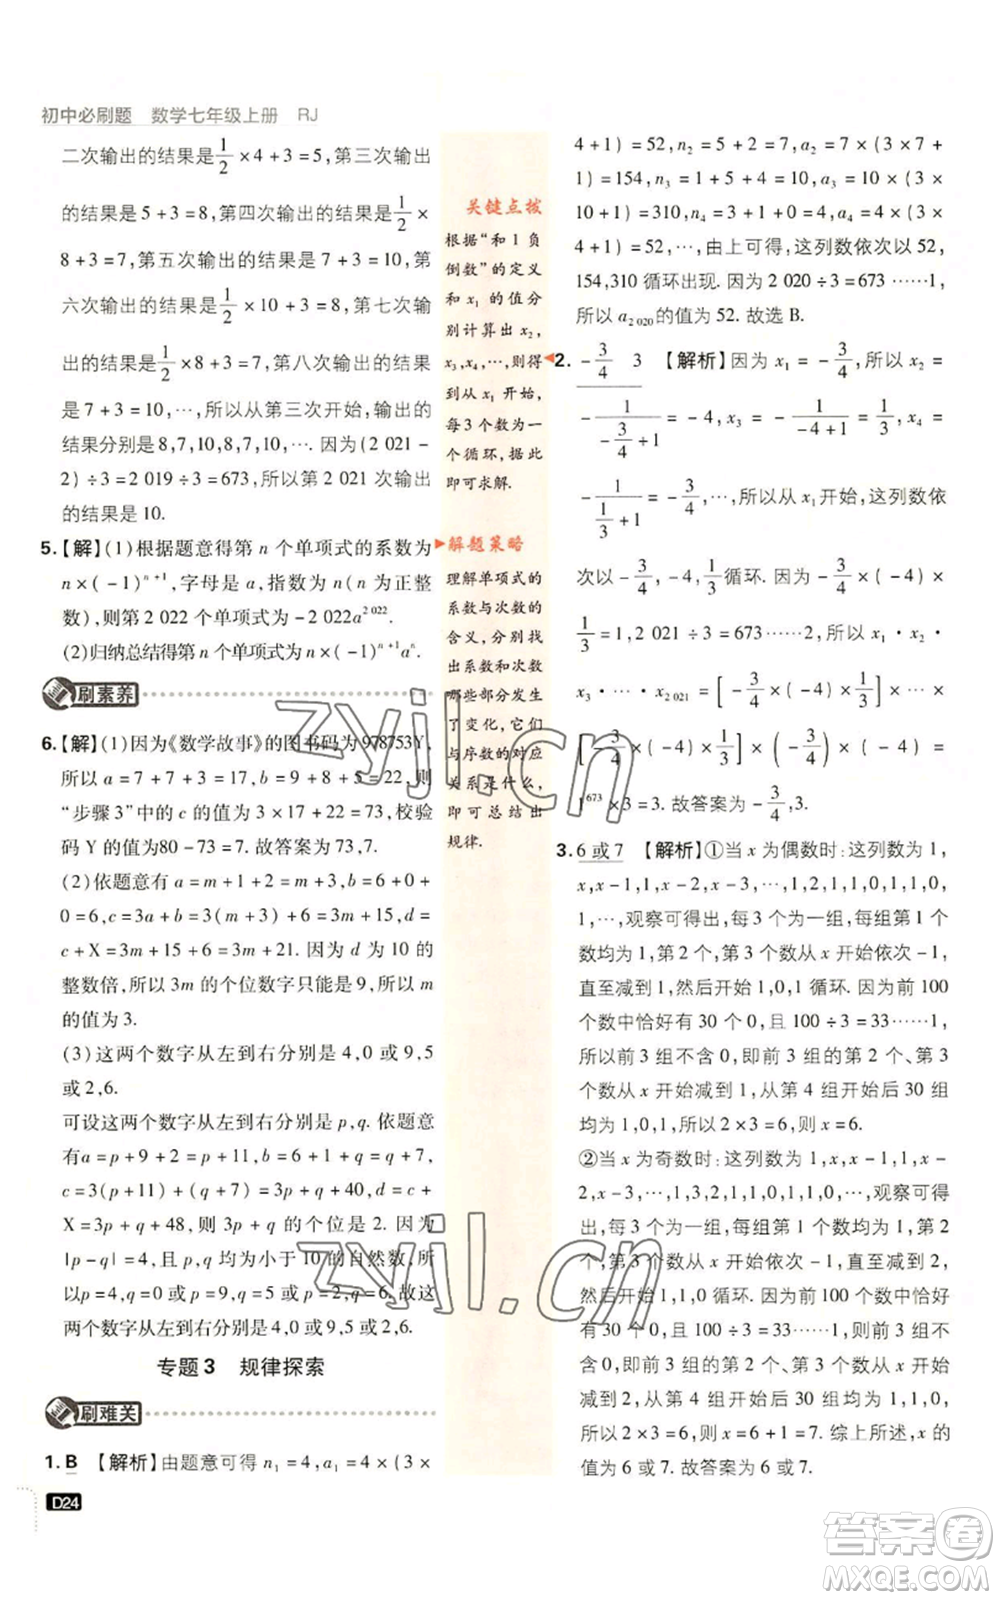 初中必刷题 数学七年级上册 RJ
二次输出的结果是1/2×4+3=5,第三次输出
的结果是5+3=8,第四次输出的结果是1/2×
8+3=7,第五次输出的结果是7+3=10,第
六次输出的结果是1/2×10+3=8,第七次输
出的结果是1/2×8+3=7,第八次输出的结果
是7+3=10,…,所以从第三次开始,输出的
结果分别是8,7,10,8,7,10,….因为(2 021-
2)÷3=2 019÷3=673,所以第2 021次输出
的结果是10.
5.【解】(1)根据题意得第n个单项式的系数为
n×(-1)ⁿ⁺¹,字母是a,指数是n(n为正整
数),则第2 022个单项式为-2 022a²⁰²².
(2)归纳总结得第n个单项式为n×(-1)ⁿ⁺¹aⁿ.
刷素养
6.【解】(1)因为《数学故事》的图书码为978753Y,
所以a=7+7+3=17,b=9+8+5=22,则
“步骤3”中的c的值为3×17+22=73,校验
码Y的值为80-73=7.故答案为73,7.
(2)依题意有a=m+1+2=m+3,b=6+
0+0=6,c=3a+b=3m+9+6=3m+15,d=
c+X=3m+15+6=3m+21.因为d为10的
整数倍,所以3m的个位数字只能是9,所以m
的值为3.
(3)这两个数字从左到右分别是4,0或9,5
或2,6.
可设这两个数字从左到右分别是p,q.依题意
有a=p+9+2=p+11,b=6+1+q=q+7,
c=3(p+11)+(q+7)=3p+q+40,d=c+
X=3p+q+48,则3p+q的个位是2.因为
|p-q|=4,p,q均为小于10的自然数,所
以p=4,q=0或p=9,q=5或p=2,q=6.故这
两个数字从左到右分别是4,0或9,5或2,6.
专题3 规律探索
刷难关
1.B 【解析】由题意可得n₁=4,a₁=4×(3×
D24
关键点拨
根据“和1负
倒数”的定义
和x₁的值分
别计算出x₂,
x₃,x₄,…,则得
到从x₁开始,
每3个数为一
个循环,据此
即可求解.
解题策略
理解单项式的
系数与次数的
含义,分别找
出系数和次数
哪些部分发生
了变化,它们
与序数的对应
关系是什么,
即可总结出
规律.
4+1)=52,n₂=5+2=7,a₂=7×(3×7+
1)=154,n₃=1+5+4=10,a₃=10×(3×
10+1)=310,n₄=3+1+0=4,a₄=4×(3×
4+1)=52,…,由上可得,这列数依次以52,
154,310循环出现.因为2 020÷3=673……1,
所以a₂ ₀₂₀的值为52.故选B.
2. -3/4 3 【解析】因为x₁=-3/4,所以x₂=
-1/(-3/4+1)=-4,x₃=-1/(-4+1)=1/3,x₄=
-1/(1/3+1)=-3/4,…,所以从x₁开始,这列数依
次以-3/4,-4,1/3循环.因为-3/4×(-4)×
1/3=1,2 021÷3=673……2,所以x₁·x₂·
x₃·…·x₂ ₀₂₁=[-3/4×(-4)×1/3]×…×
[-3/4×(-4)×1/3]×(-3/4)×(-4)=
1⁶⁷³×3=3.故答案为-3/4,3.
3.6或7 【解析】①当x为偶数时:这列数为1,
x,x-1,1,x-2,x-3,1,…,1,0,1,1,0,1,
1,…,观察可得出,每3个为一组,每组第1个
数均为1,第2个,第3个数从x开始依次-1,
直至减到1,然后开始1,0,1循环.因为前100
个数中恰好有30个0,且100÷3=33……1,
所以前3组不含0,即前3组的第2个、第3
个数从x开始减到1,从第4组开始后30组
为1,0,1,所以2×3=6,所以x=6.
②当x为奇数时:这列数为1,x,x-1,1,x-2,
x-3,…,1,1,0,1,1,0,1,1,…,观察可得
出,每3个为一组,每组第1个数均为1,第2
个,第3个数从x开始依次-1,直至减到1,然
后开始1,1,0循环.因为前100个数中恰好有
30个0,且100÷3=33……1,所以前3组不
含0,即前3组的第2个、第3个数从x开始
减到1或0,从第4组开始后30组为1,1,0,
所以2×3+1=7,所以x=7.综上所述,x的
值为6或7.故答案为6或7.
zyjl.cn
zyjl.cn
答案圈
MXQE.COM